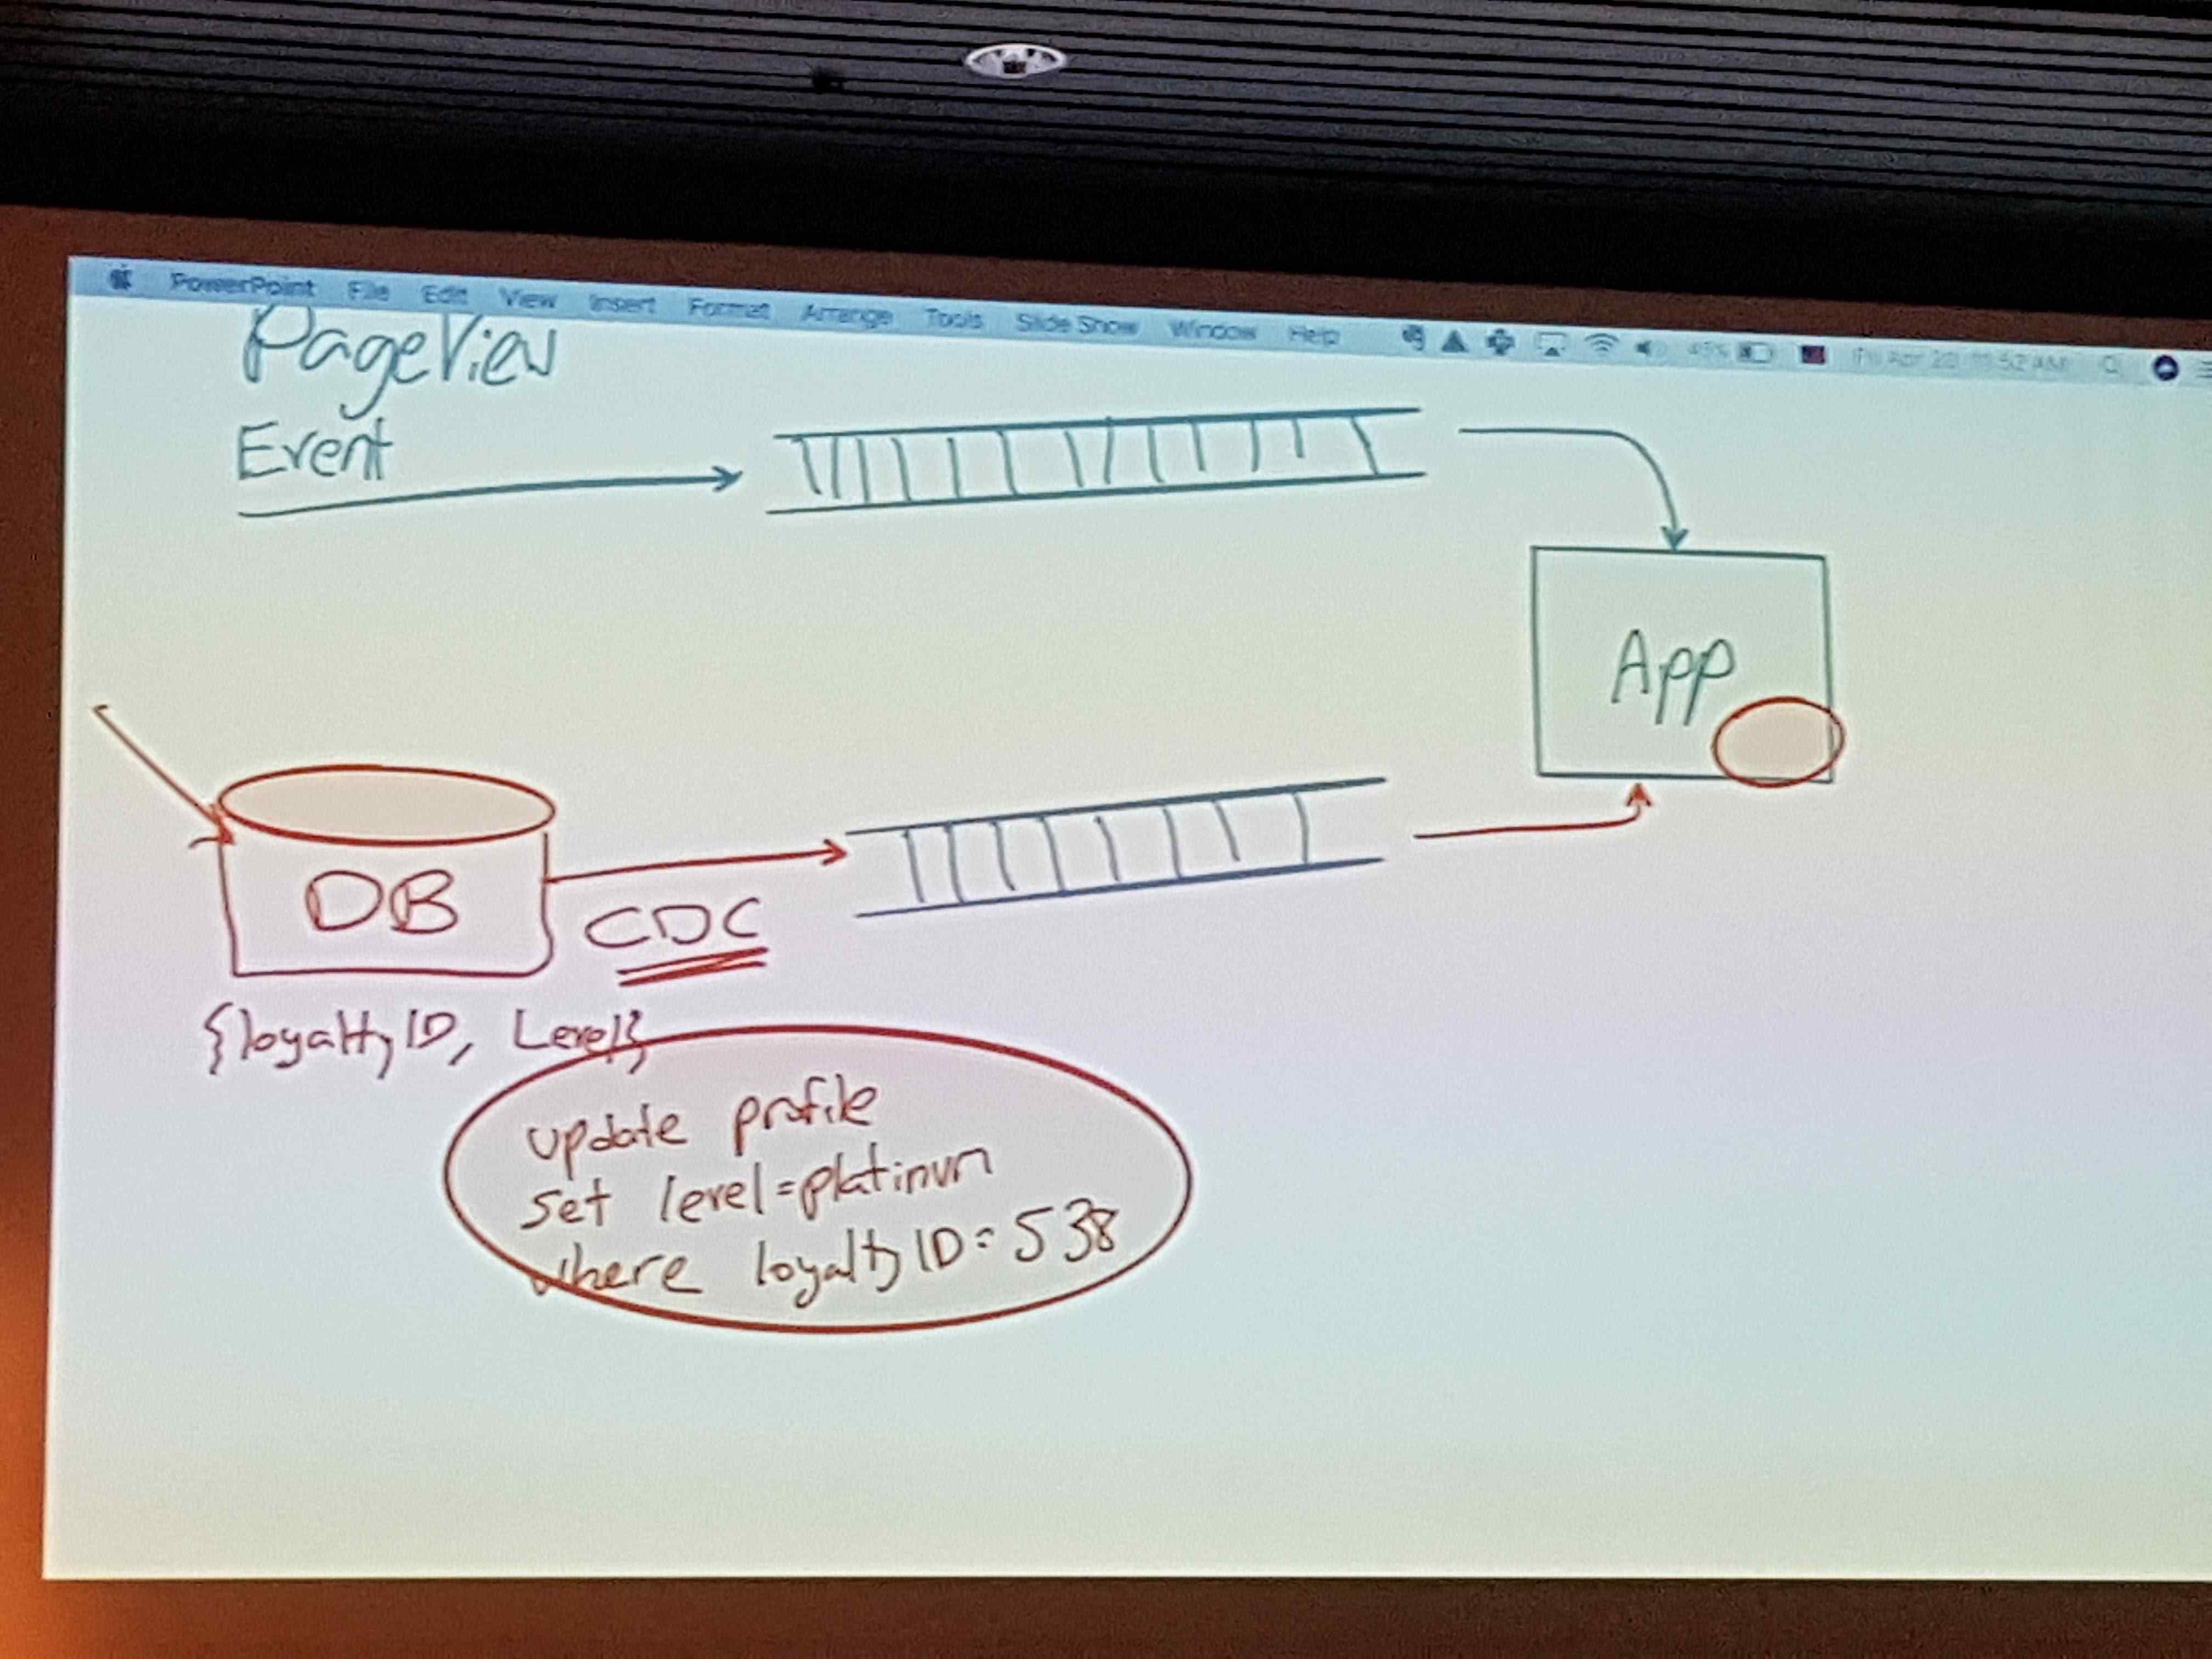 PowerPoint File Edit View Insert Format Arrange Tools Slide Show Window Help
PageView
Event
App
DB
CDC
{loyaltyID, Level}
update profile
set level=platinum
where loyaltyID=538